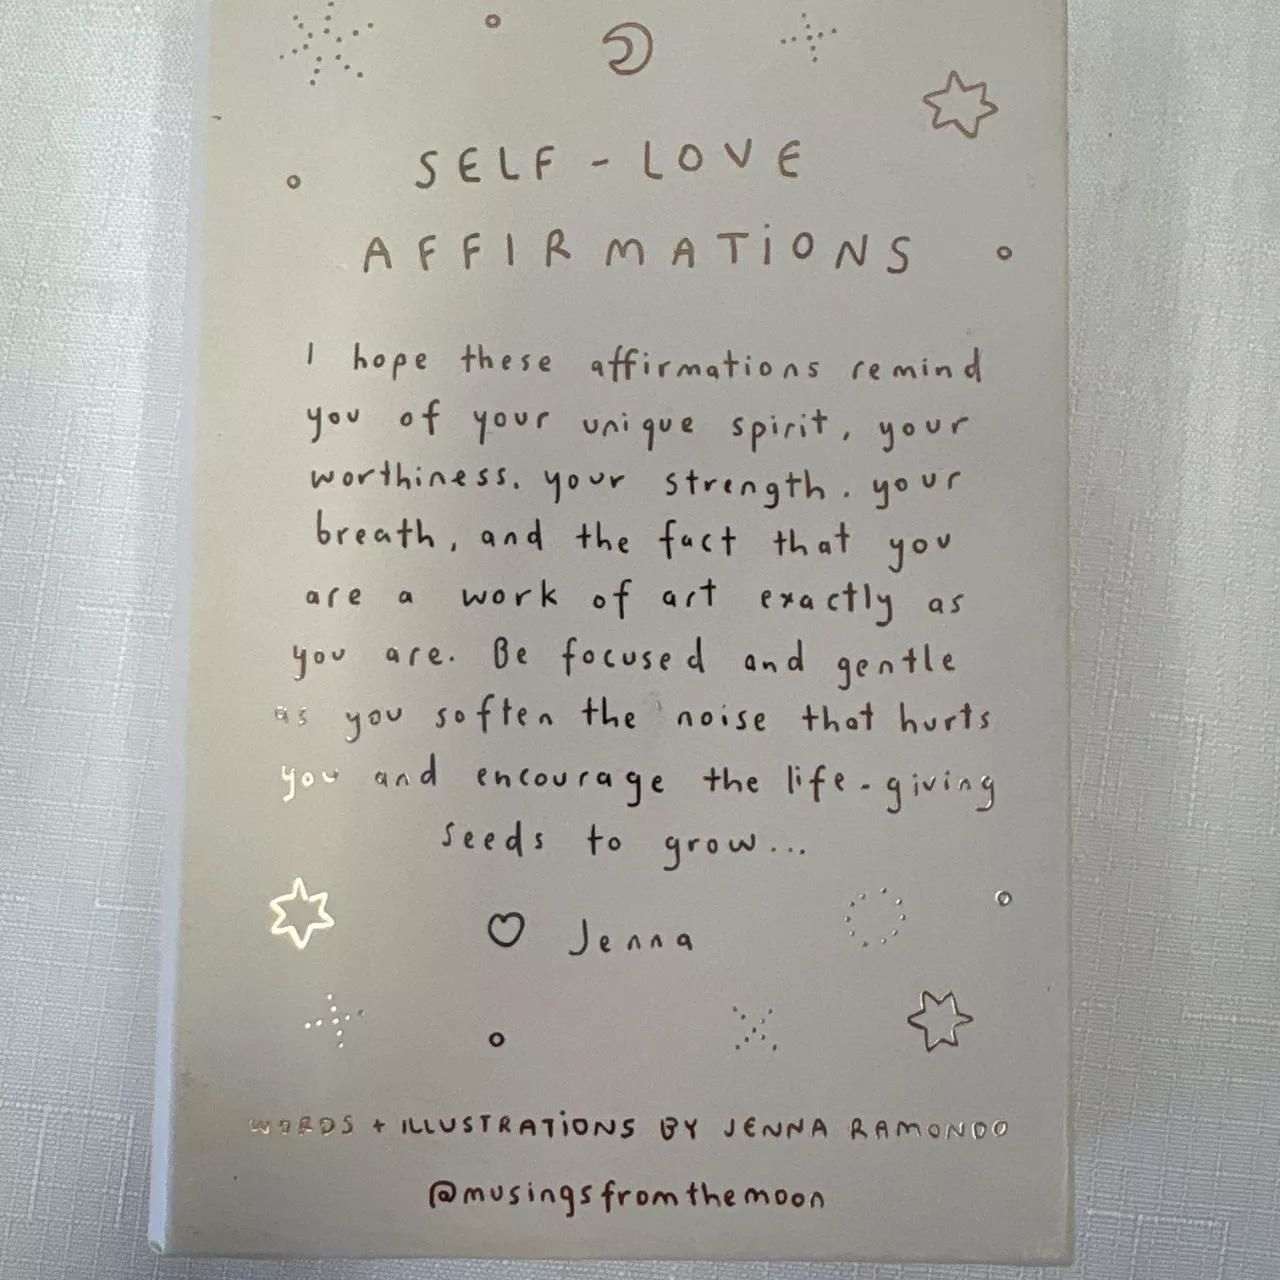 SELF-LOVE
AFFIRMATIONS
I hope these affirmations remind
you of your unique spirit, your
worthiness, your strength, your
breath, and the fact that you
are a work of art exactly as
you are. Be focused and gentle
as you soften the noise that hurts
you and encourage the life-giving
seeds to grow...
♡ Jenna
WORDS + ILLUSTRATIONS BY JENNA RAMONDO
@musingsfromthemoon